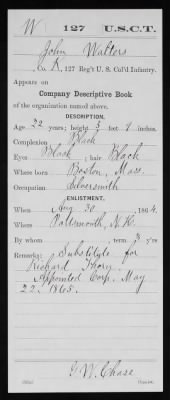 W 127 U.S.C.T.
John Walters
Co. K, 127 Reg't U. S. Col'd Infantry.
Appears on
Company Descriptive Book
of the organization named above.
DESCRIPTION.
Age 22 years; height 5 feet 7 inches.
Complexion Black
Eyes Black; hair Black
Where born Boston, Mass.
Occupation Silversmith
ENLISTMENT.
When Aug 30, 1864.
Where Portsmouth, N.H.
By whom ; term 3 y'rs
Remarks: Substitute for
Richard Thorn.
Appointed Corp. May
22. 1865.
G. W. Chase
Copyist.